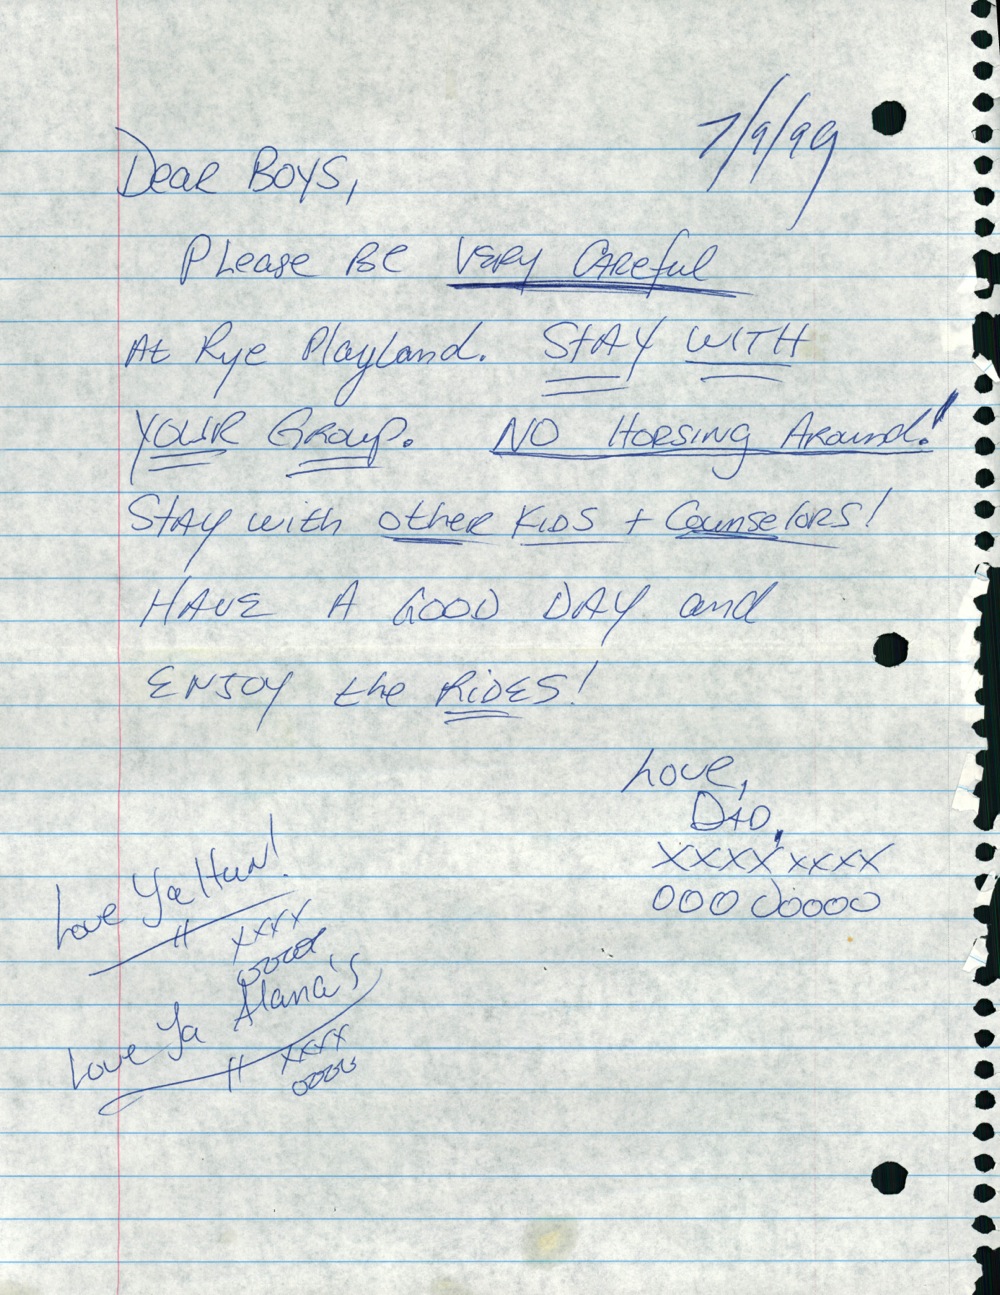 7/9/99
Dear Boys,
Please Be VERY CAREful
At Rye Playland. STAY WITH
YOUR GROUP. NO HORSING AROUND!
STAY with other KIDS + Counselors!
HAVE A GOOD DAY and
ENJOY the RIDES!
Love,
DAD,
XXXX XXXX
OOO OOOOO
Love Ya Hun!
"
XXXX
OOOOO
Love Ya Alana's
"
XXXX
OOOO